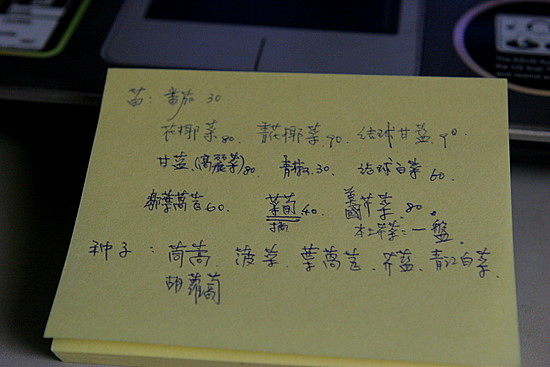 苗：番茄 30
花椰菜80、青花椰菜90、結球甘藍、90
甘藍、(高麗菜)80、青椒、30、結球白菜60
萵苣60、菜蔔、40、芥菜、80。
摘
一盤、
种子：茼蒿、菠菜、葉萵苣、芥藍、青江白菜、
胡蘿蔔